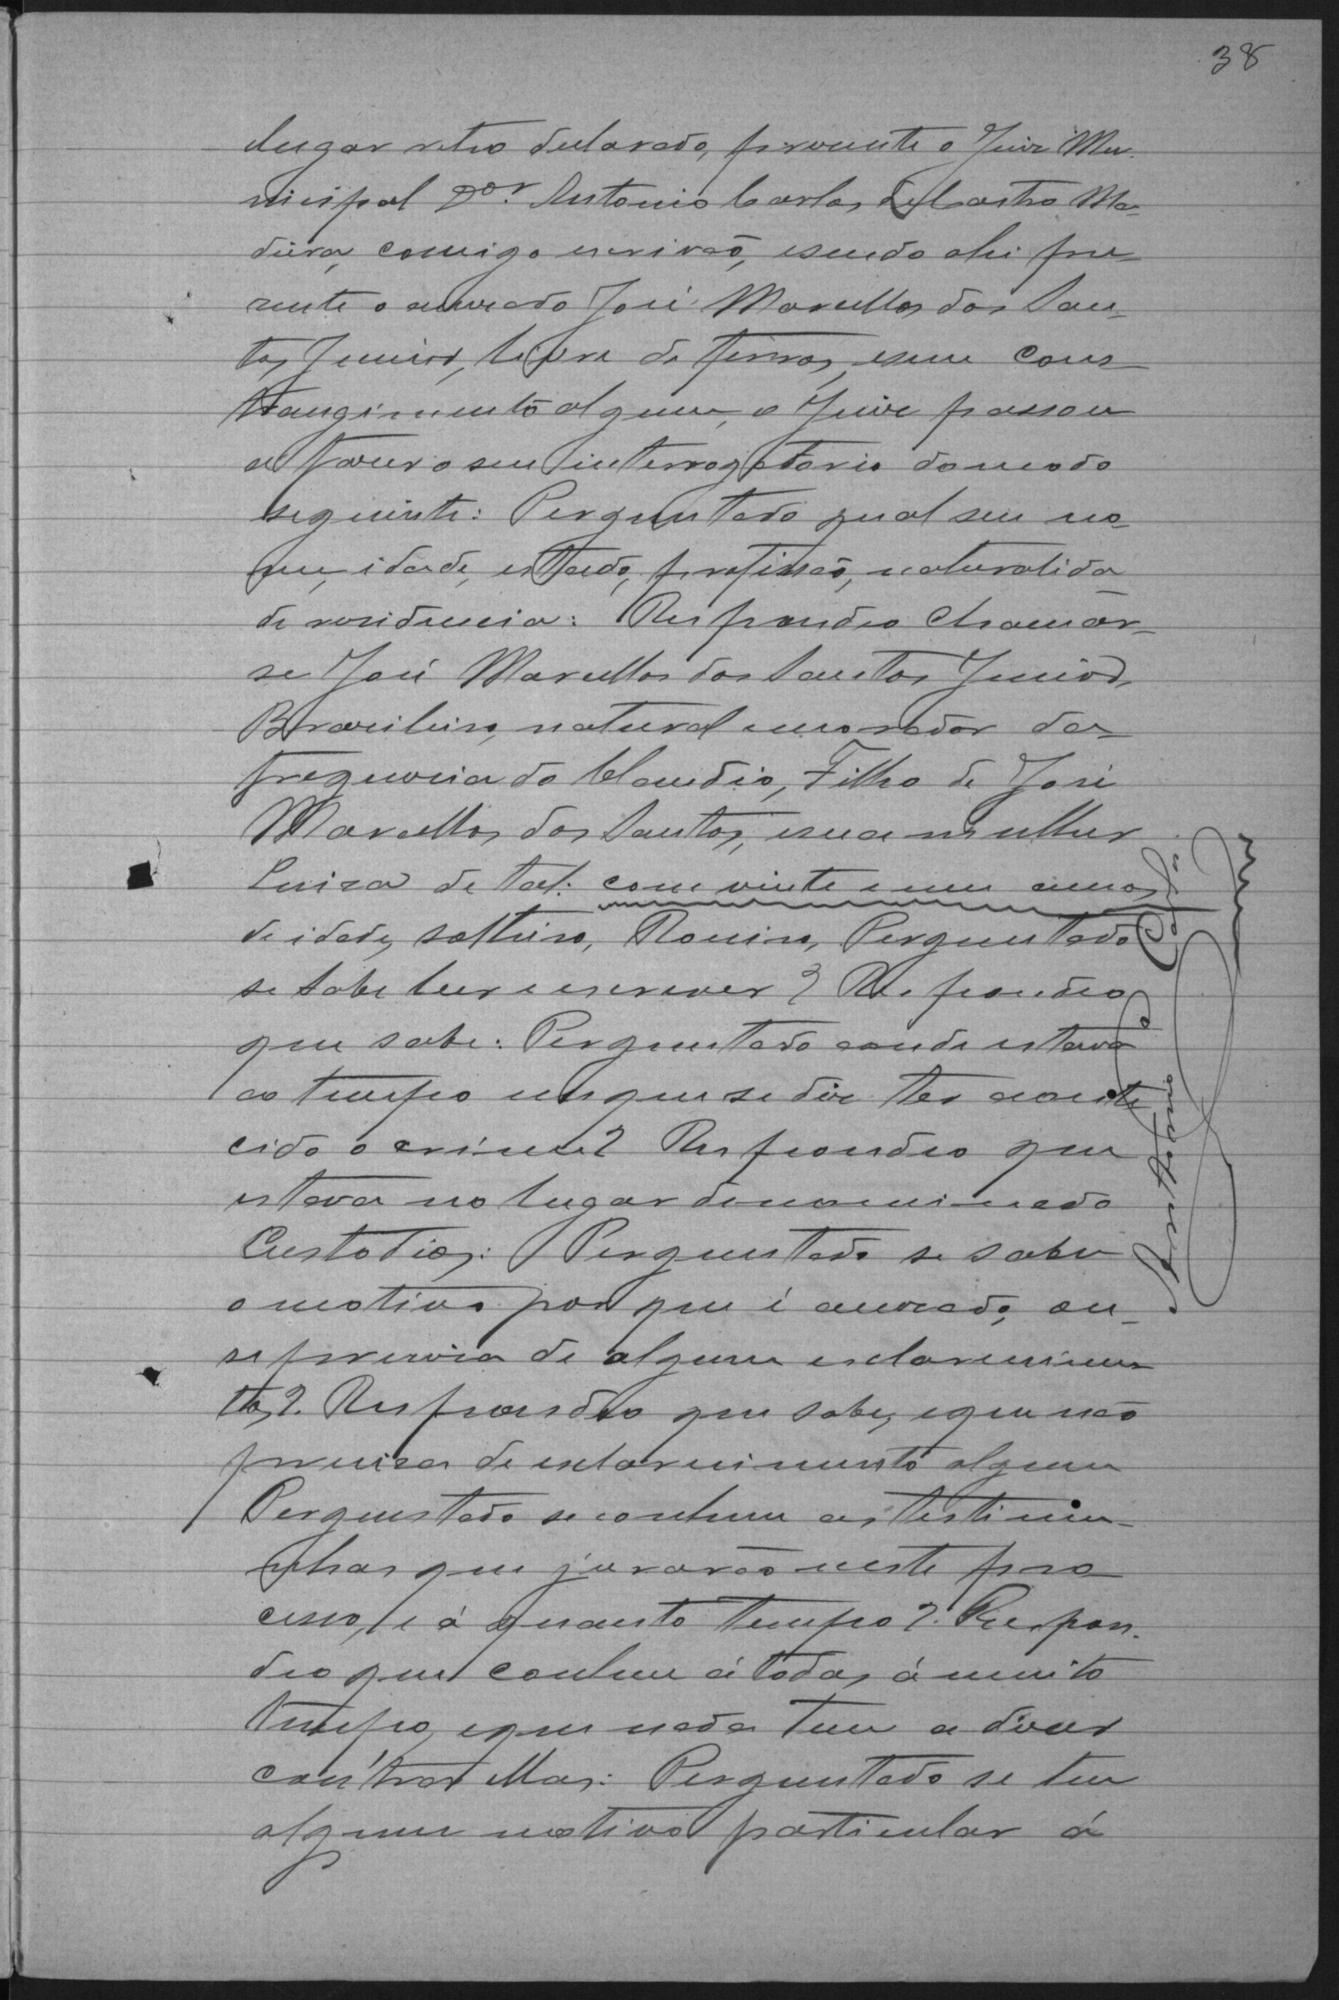 38
lugar retro declarado, prezente o Juiz Mu-
nicipal Dor. Antonio Carlos de Castro Ma-
deira, comigo escrivão, esendo ahi pre-
zente o acuzado José Marcellos dos San-
tos Junior, livre de ferros, esem cons
trangimento algum, o Juiz passou
a fazer o seu interrogatorio domodo
seguinte: Perguntado qual seu no-
me, idade, estado, profissão, naturalida
de rezidencia: Respondeo chamar-
se José Marcellos dos Santos Junior,
Brazileiro, natural emorador da
freguezia do Claudio, Filho de José
Marcellos dos Santos, esua mulher
Luiza de tal: com vinte e um annos
de idade, solteiro, Perguntado
se sabe ler e escrever? Respondeo
que sabe: Perguntado aonde estava
ao tempo emque se diz ter aconte
cido o crime? Respondeo que
estava no lugar denominado
Custodios: Perguntado se sabe
o motivo por que é acuzado, ou
se preciza de algum esclarecimen
to? Respondeo que sabe, eque não
preciza de esclarecimento algum
Perguntado se conhece as testimu-
nhas que jurarão neste pro
cesso, e á quanto tempo? Respon-
deo que conhece á todas á muito
tempo, eque nada tem a dizer
contra ellas: Perguntado se tem
algum motivo particular á
Antonio Carlos